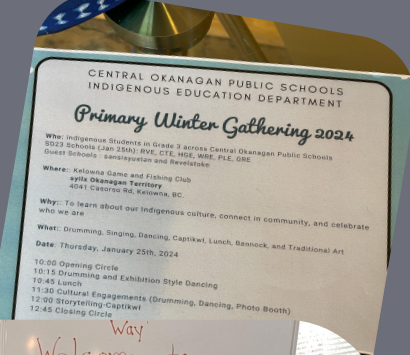 CENTRAL OKANAGAN PUBLIC SCHOOLS
INDIGENOUS EDUCATION DEPARTMENT
Primary Winter Gathering 2024
Who: Indigenous Students in Grade 3 across Central Okanagan Public Schools
SD23 Schools (Jan 25th): RVE, CTE, HGE, WRE, PLE, GRE
Guest Schools: sənsisyustən and Revelstoke
Where:: Kelowna Game and Fishing Club
syilx Okanagan Territory
4041 Casorso Rd, Kelowna, BC.
Why:: To learn about our Indigenous culture, connect in community, and celebrate
who we are
What:: Drumming, Singing, Dancing, Captikwl, Lunch, Bannock, and Traditional Art
Date: Thursday, January 25th, 2024
10:00 Opening Circle
10:15 Drumming and Exhibition Style Dancing
10:45 Lunch
11:30 Cultural Engagements (Drumming, Dancing, Photo Booth)
12:00 Storytelling-Captikwl
12:45 Closing Circle
Way